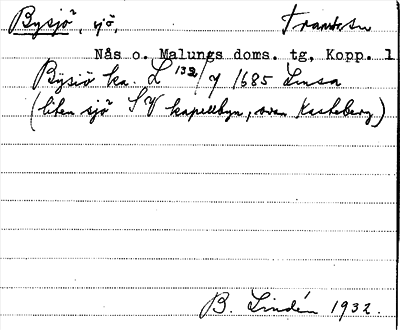 Bysjö, sjö,
Nås o. Malungs doms. tg, Kopp. l
Bÿsiö ka. L 132/7 1685 Lmsa
(liten sjö SV kapellbyn, ovan Kasteberg)
B. Lindén 1932.